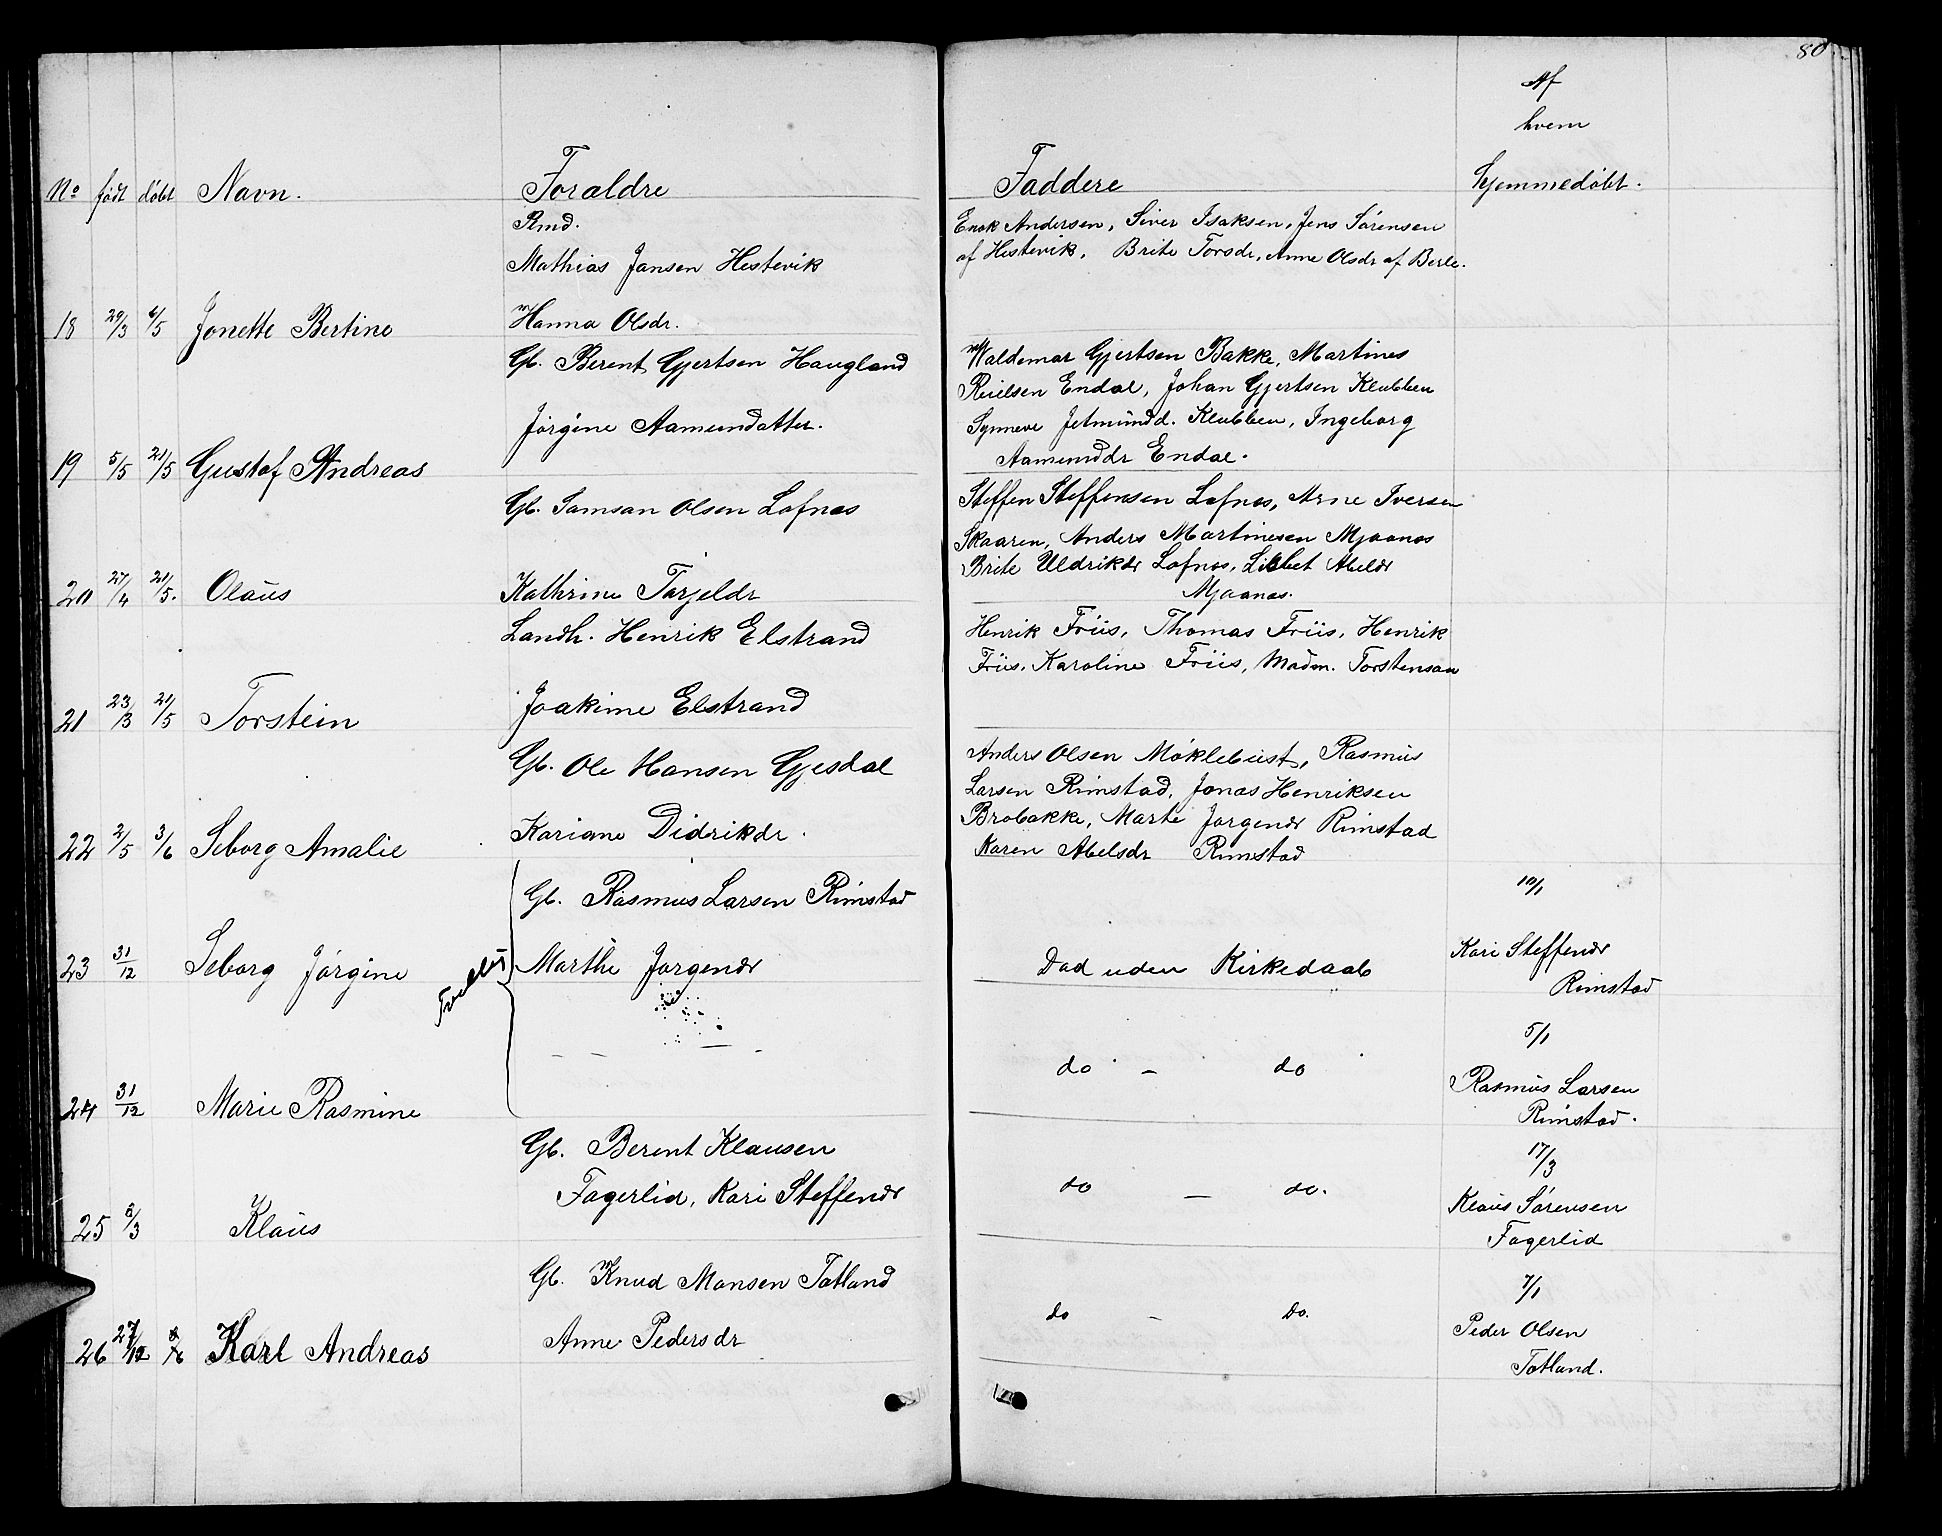 80
Af
hvem
No født døbt Navn. Forældre Faddere hjemmedøbt.
Rmd.
Mathias Jansen Hestevik
Enok Andersen, Siver Isaksen, Jens Sørensen
af Hestevik, Brite Torsdr, Anne Olsdr af Berle.
18 29/3 6/5 Jonette Bertine Hanna Olsdr.
Gb. Berent Gjertsen Haugland
Jørgine Aamundatter.
Waldemar Gjertsen Bakke, Martines
Reielsen Endal, Johan Gjertsen Klubben
Synneve Jetmundd. Klubben, Ingeborg
Aamunddr Endal.
19 5/5 21/5 Gustaf Andreas
Gb. Samson Olsen Lofnæs
Steffen Steffensen Lofnæs, Arne Iversen
Skaaren, Anders Martinesen Mjaanæs
Brite Uldrikdr Lofnæs, Lisbet Abeldr
Mjaanæs.
20 27/4 21/5. Olaus Kathrine Tarjeldr
Landh. Henrik Elstrand
Joakime Elstrand
Henrik Friis, Thomas Friis, Henrik
Friis, Karoline Friis, Madm. Torstenson
21 23/3 21/5 Torstein
Gb. Ole Hansen Gjesdal
Kariane Didrikdr.
Anders Olsen Møklebust, Rasmus
Larsen Rimstad, Jonas Henriksen
Brobakke, Marte Jørgendr Rimstad
Karen Abelsdr Rimstad
22 2/5 3/6 Seborg Amalie
Gb. Rasmus Larsen Rimstad
10/1
23 31/12 Seborg Jørgine Marthe Jørgendr Død uden Kirkedaab Kari Steffendr
Rimstad
5/1
24 31/12 Marie Rasmine — — — do — do Rasmus Larsen
Rimstad.
Gb. Berent Klausen
Fagerlid, Kari Steffendr
17/3
25 8/3 Klaus do — do. Klaus Sørensen
Fagerlid
Gb. Knud Monsen Totland
Anne Pedersdr
7/1
26 27/12 Karl Andreas do — do. Peder Olsen
Totland.